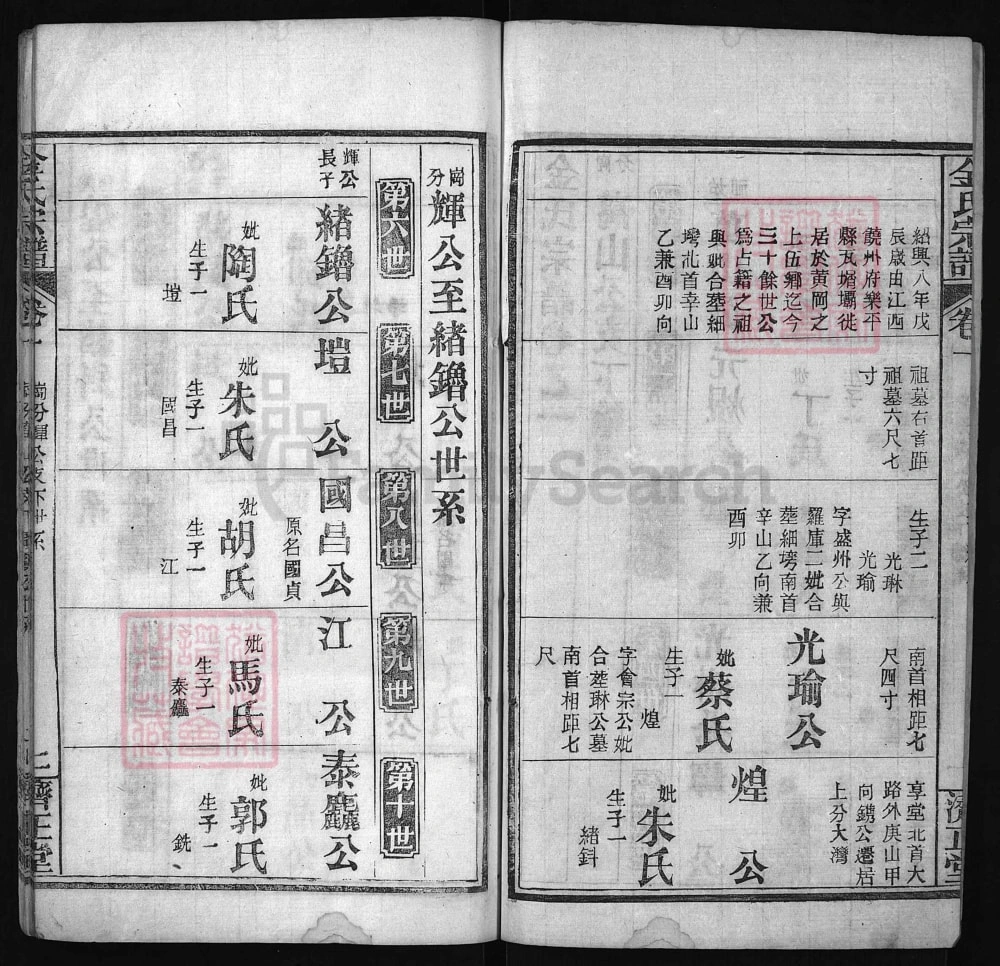 金氏宗譜
卷一
濟正堂
紹興八年戊
辰歲由江西
饒州府樂平
縣瓦屑壩徙
居於黃岡之
上伍鄉迄今
三十餘世公
爲占籍之祖
與妣合塟細
塆北首辛山
乙兼酉卯向
祖墓右首距
祖墓六尺七
寸
生子二
光琳
光瑜
字盛州公與
羅庫二妣合
塟細塆南首
辛山乙向兼
酉卯
南首相距七
尺四寸
光瑜公
妣蔡氏
生子一
煌
字會宗公妣
合塟琳公墓
南首相距七
尺
享堂北首大
路外庚山甲
向鎊公遷居
上分大灣
煌公
妣朱氏
生子一
緒㪷
崗分
輝公至緒鐪公世系
第六世
第七世
第八世
第九世
第十世
輝公長子
緒鐪公
妣陶氏
生子一
塏
塏公
妣朱氏
生子一
國昌
國昌公
原名國貞
妣胡氏
生子一
江
江公
妣馬氏
生子一
泰麤
泰麤公
妣郭氏
生子一
銑
金氏宗譜
卷一
濟正堂
FamilySearch